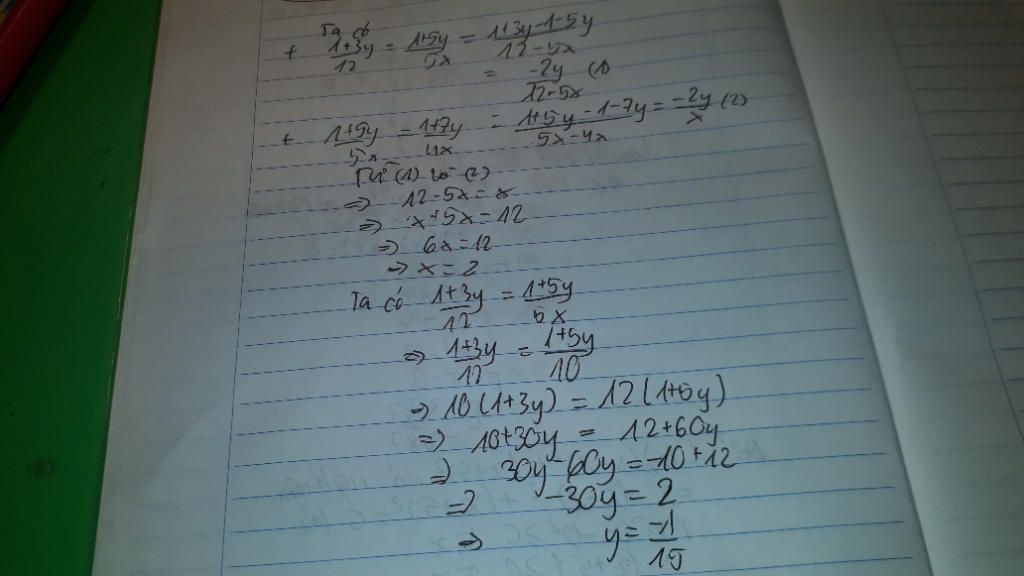 Ta có
+ \frac{1+3y}{12} = \frac{1+5y}{5x} = \frac{1+3y-1-5y}{12-5x}
= \frac{-2y}{12-5x} (1)
+ \frac{1+5y}{5x} = \frac{1+7y}{4x} = \frac{1+5y-1-7y}{5x-4x} = \frac{-2y}{x} (2)
Từ (1) và (2)
=> 12-5x = x
=> x+5x = 12
=> 6x = 12
=> x = 2
Ta có \frac{1+3y}{12} = \frac{1+5y}{5x}
=> \frac{1+3y}{12} = \frac{1+5y}{10}
=> 10(1+3y) = 12(1+5y)
=> 10+30y = 12+60y
=> 30y-60y = -10+12
=> -30y = 2
=> y = \frac{-1}{15}